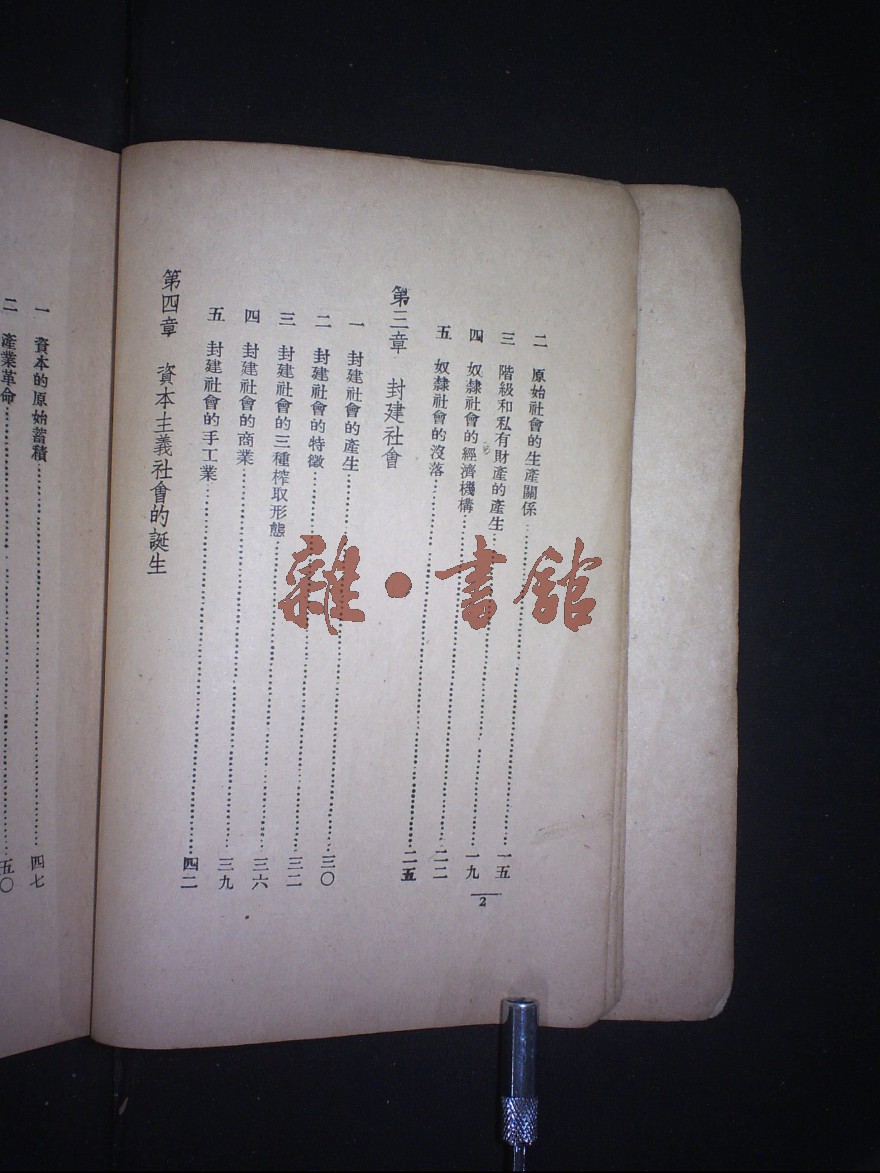 二　原始社會的生產關係……一五
三　階級和私有財產的產生……一九
四　奴隸社會的經濟機構……二二
五　奴隸社會的沒落……二五
第三章　封建社會
一　封建社會的產生……三〇
二　封建社會的特徵……三二
三　封建社會的三種榨取形態……三六
四　封建社會的商業……三九
五　封建社會的手工業……四二
第四章　資本主義社會的誕生
2
一　資本的原始蓄積……四七
二　產業革命……五〇
雜·書舘